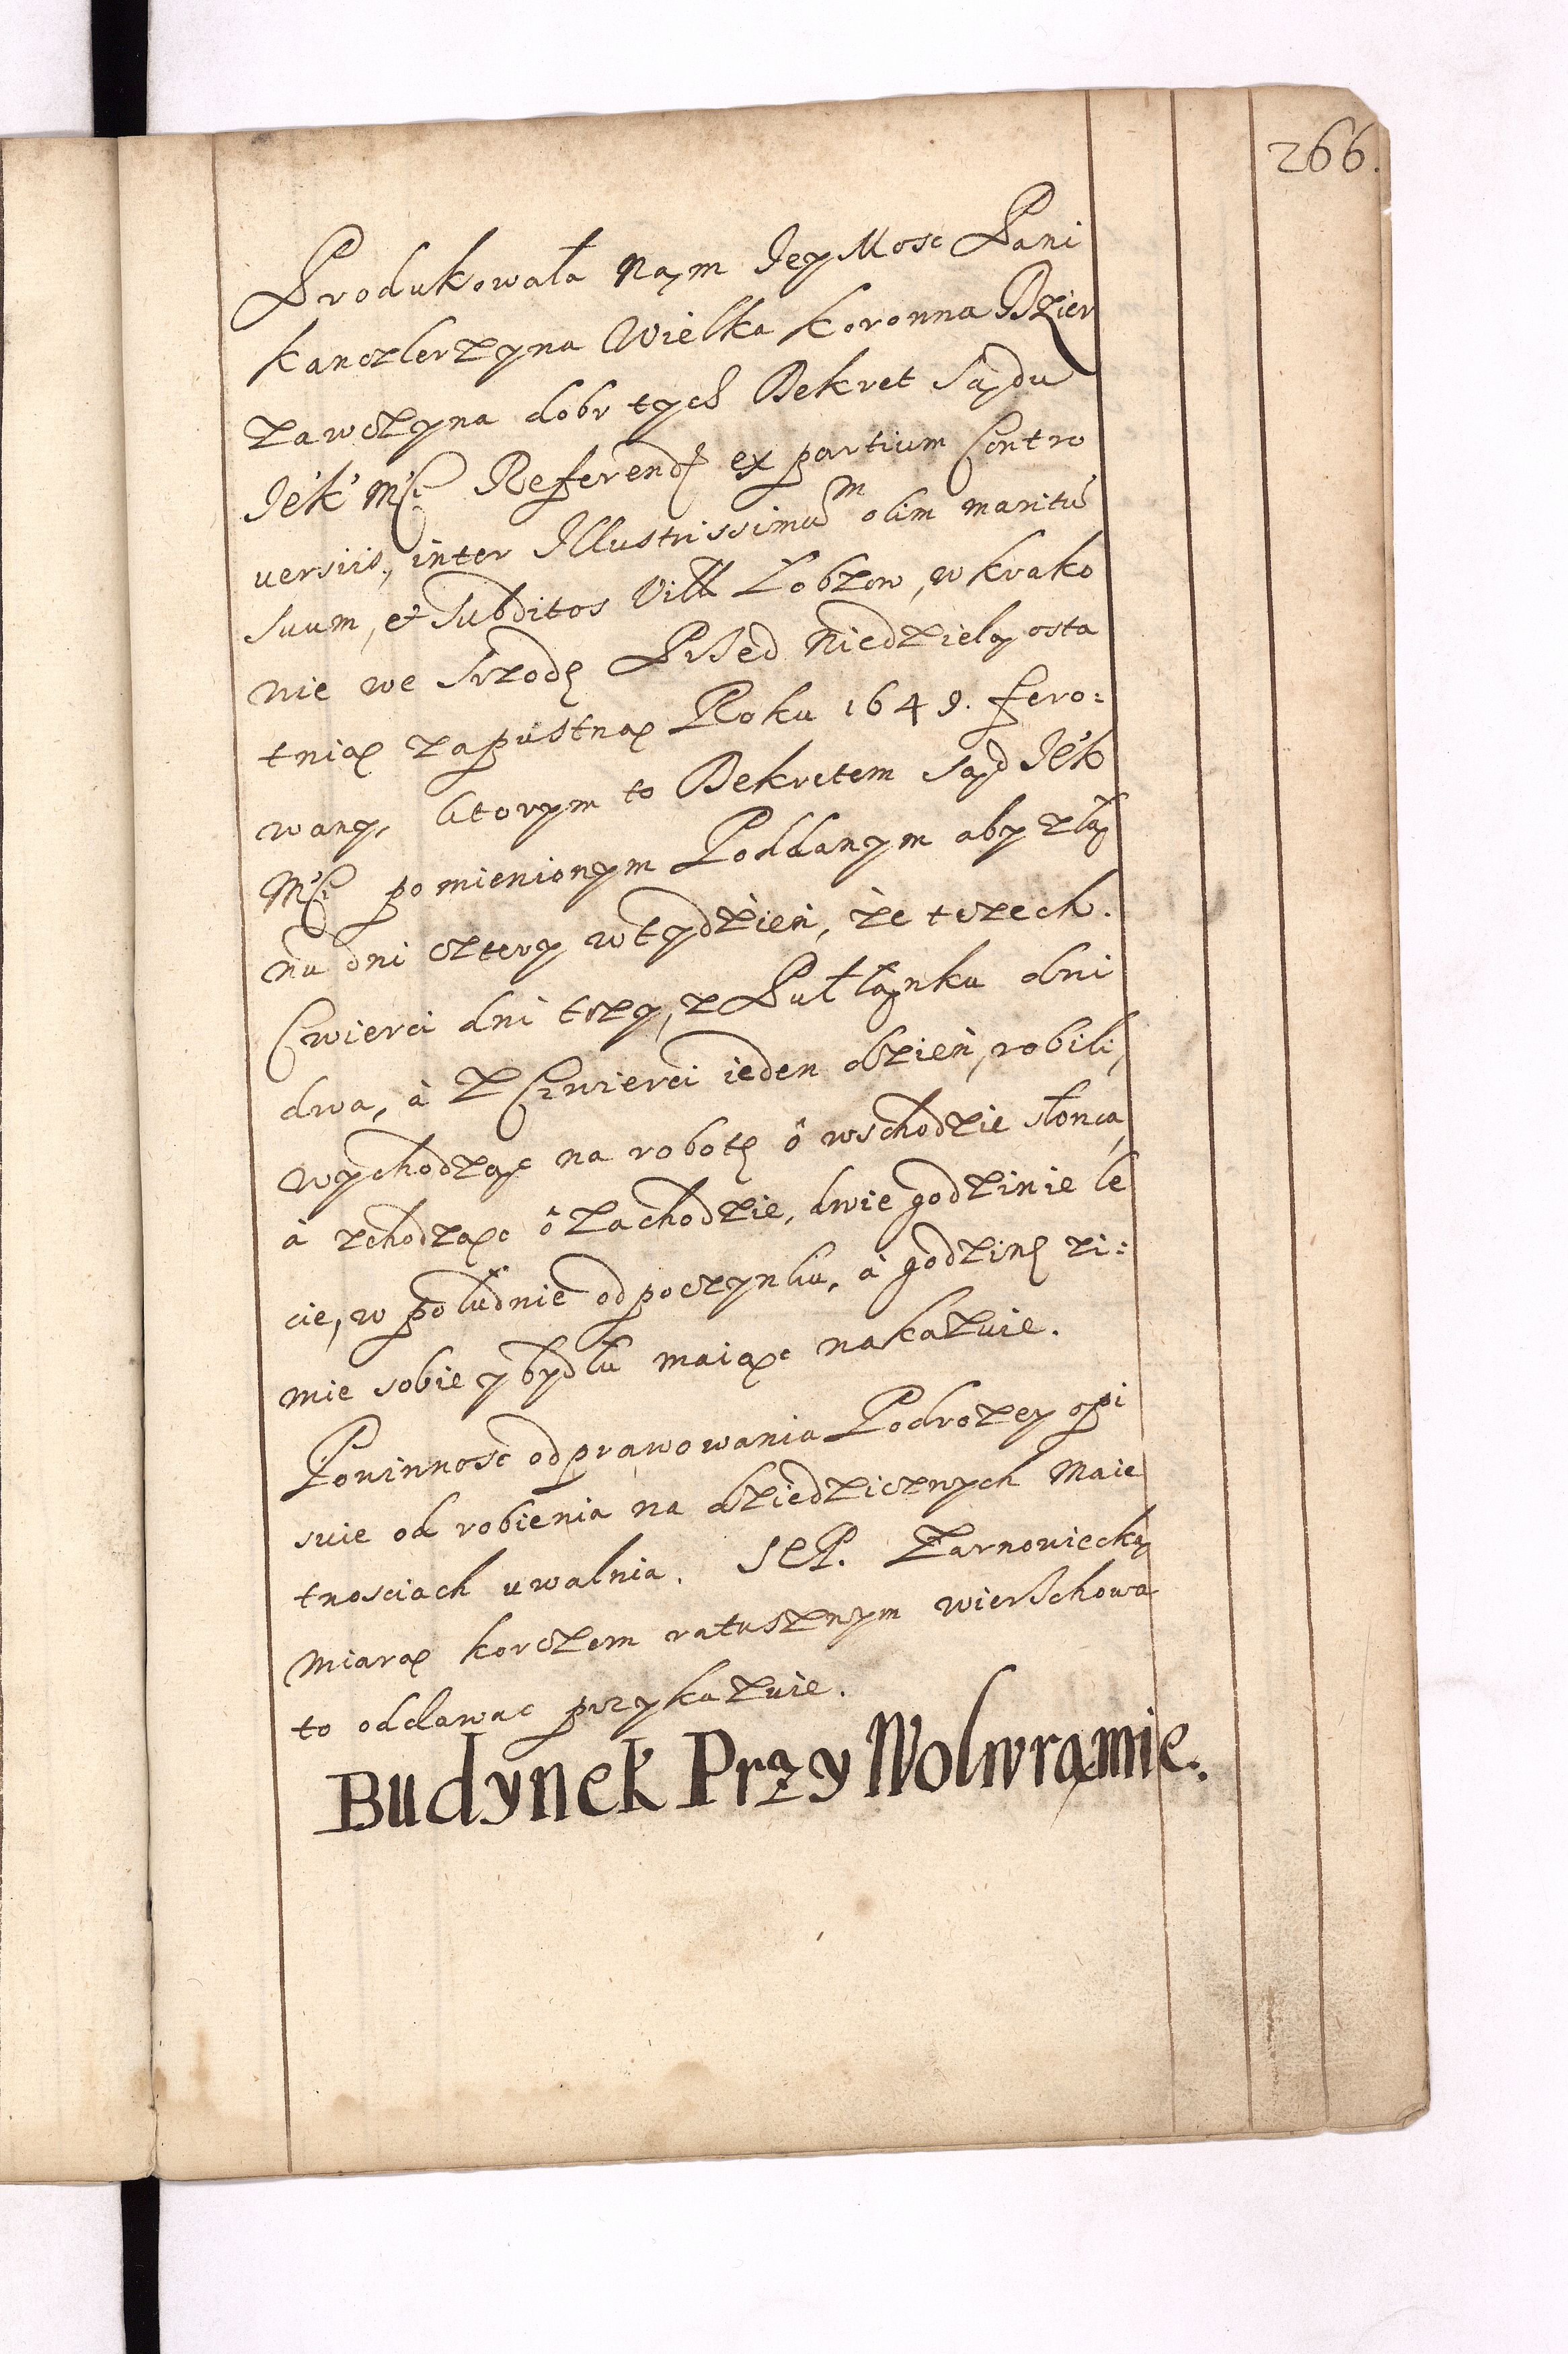 266.
Produkowała nąm JeyMosc Pani
Kanczlerzyna Wielka koronna Dzier
zawczyna dobr tych Dekret Sądu
JéK Mści Referend ex partium Contro
versiis, inter Illustrissimum olim maritū
suum, et Subditos Vill Łobzow, w krako
nie we Srzodę Przed Niedzielą osta
tnią zapustną Roku 1649. fero:
wany, ktorym to Dekretem Sąd JéK
Mści pomienionym Poddanym aby z łą
nu dni cztery w tydzień, ze trzech.
Czwierci dni trzy, z Puł łąnku dni
dwa, à z Czwierci ieden dzień, robili,
wychodząc na robotę ô wschodzie słonca,
à zchodząc ô zachodzie, dwie godzinie le
cie, w południe odpoczynku, à godzinę zi:
mie sobie y bydłu maiąc nakazuie.
Powinnosc odprawowania Podrozey opi
suie od robienia na dziedzicznych Maie
tnosciach uwalnia. SEP. Zarnowiecką
Miarą korczem ratusznym wierschowa
to oddawac przykazuie.
Budynek Przy Wolwrąmie.